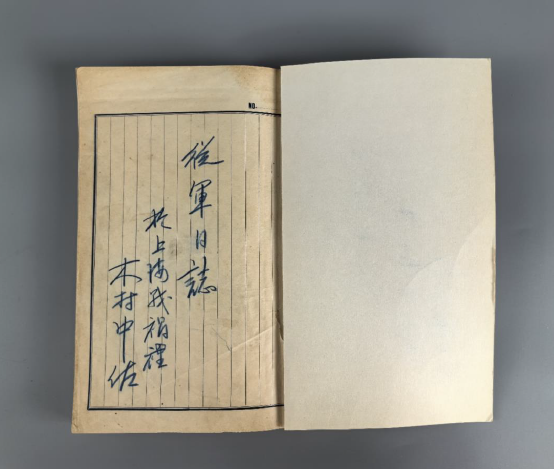 NO.
從軍日誌
於上海戦禍裡
木村中佐